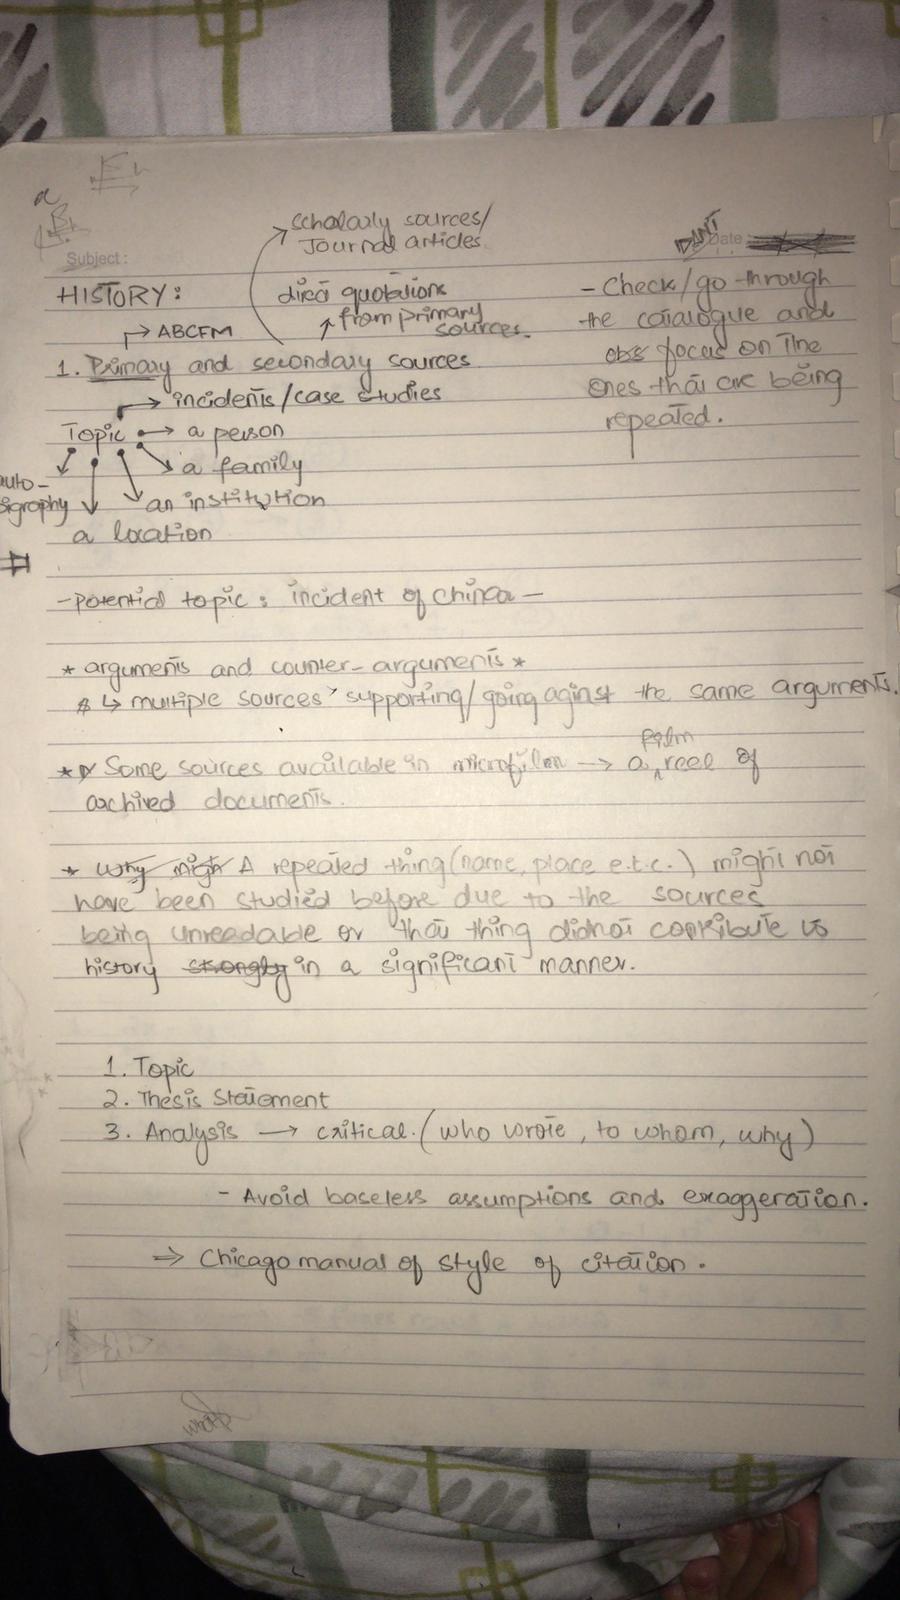 Subject :
Date
scholarly sources/
Journal articles
HISTORY:
direct quotations
from primary
sources.
ABCFM
1. Primary and secondary sources
incidents/case studies
Topic
a person
a family
an institution
a location
- Check/go through
the catalogue and
focus on the
ones that are being
repeated.
- potential topic : incident of China -
* arguments and counter-arguments *
↳ multiple sources supporting/going aginst the same arguments.
* Some sources available in microfilm → a film reel of
archived documents.
* Why might A repeated thing (name, place e.t.c.) might not
have been studied before due to the sources
being unreadable or that thing didnot contribute to
history strongly in a significant manner.
1. Topic
2. Thesis Statement
3. Analysis → critical. (who wrote, to whom, why)
- Avoid baseless assumptions and exaggeration.
⇒ Chicago manual of style of citation.